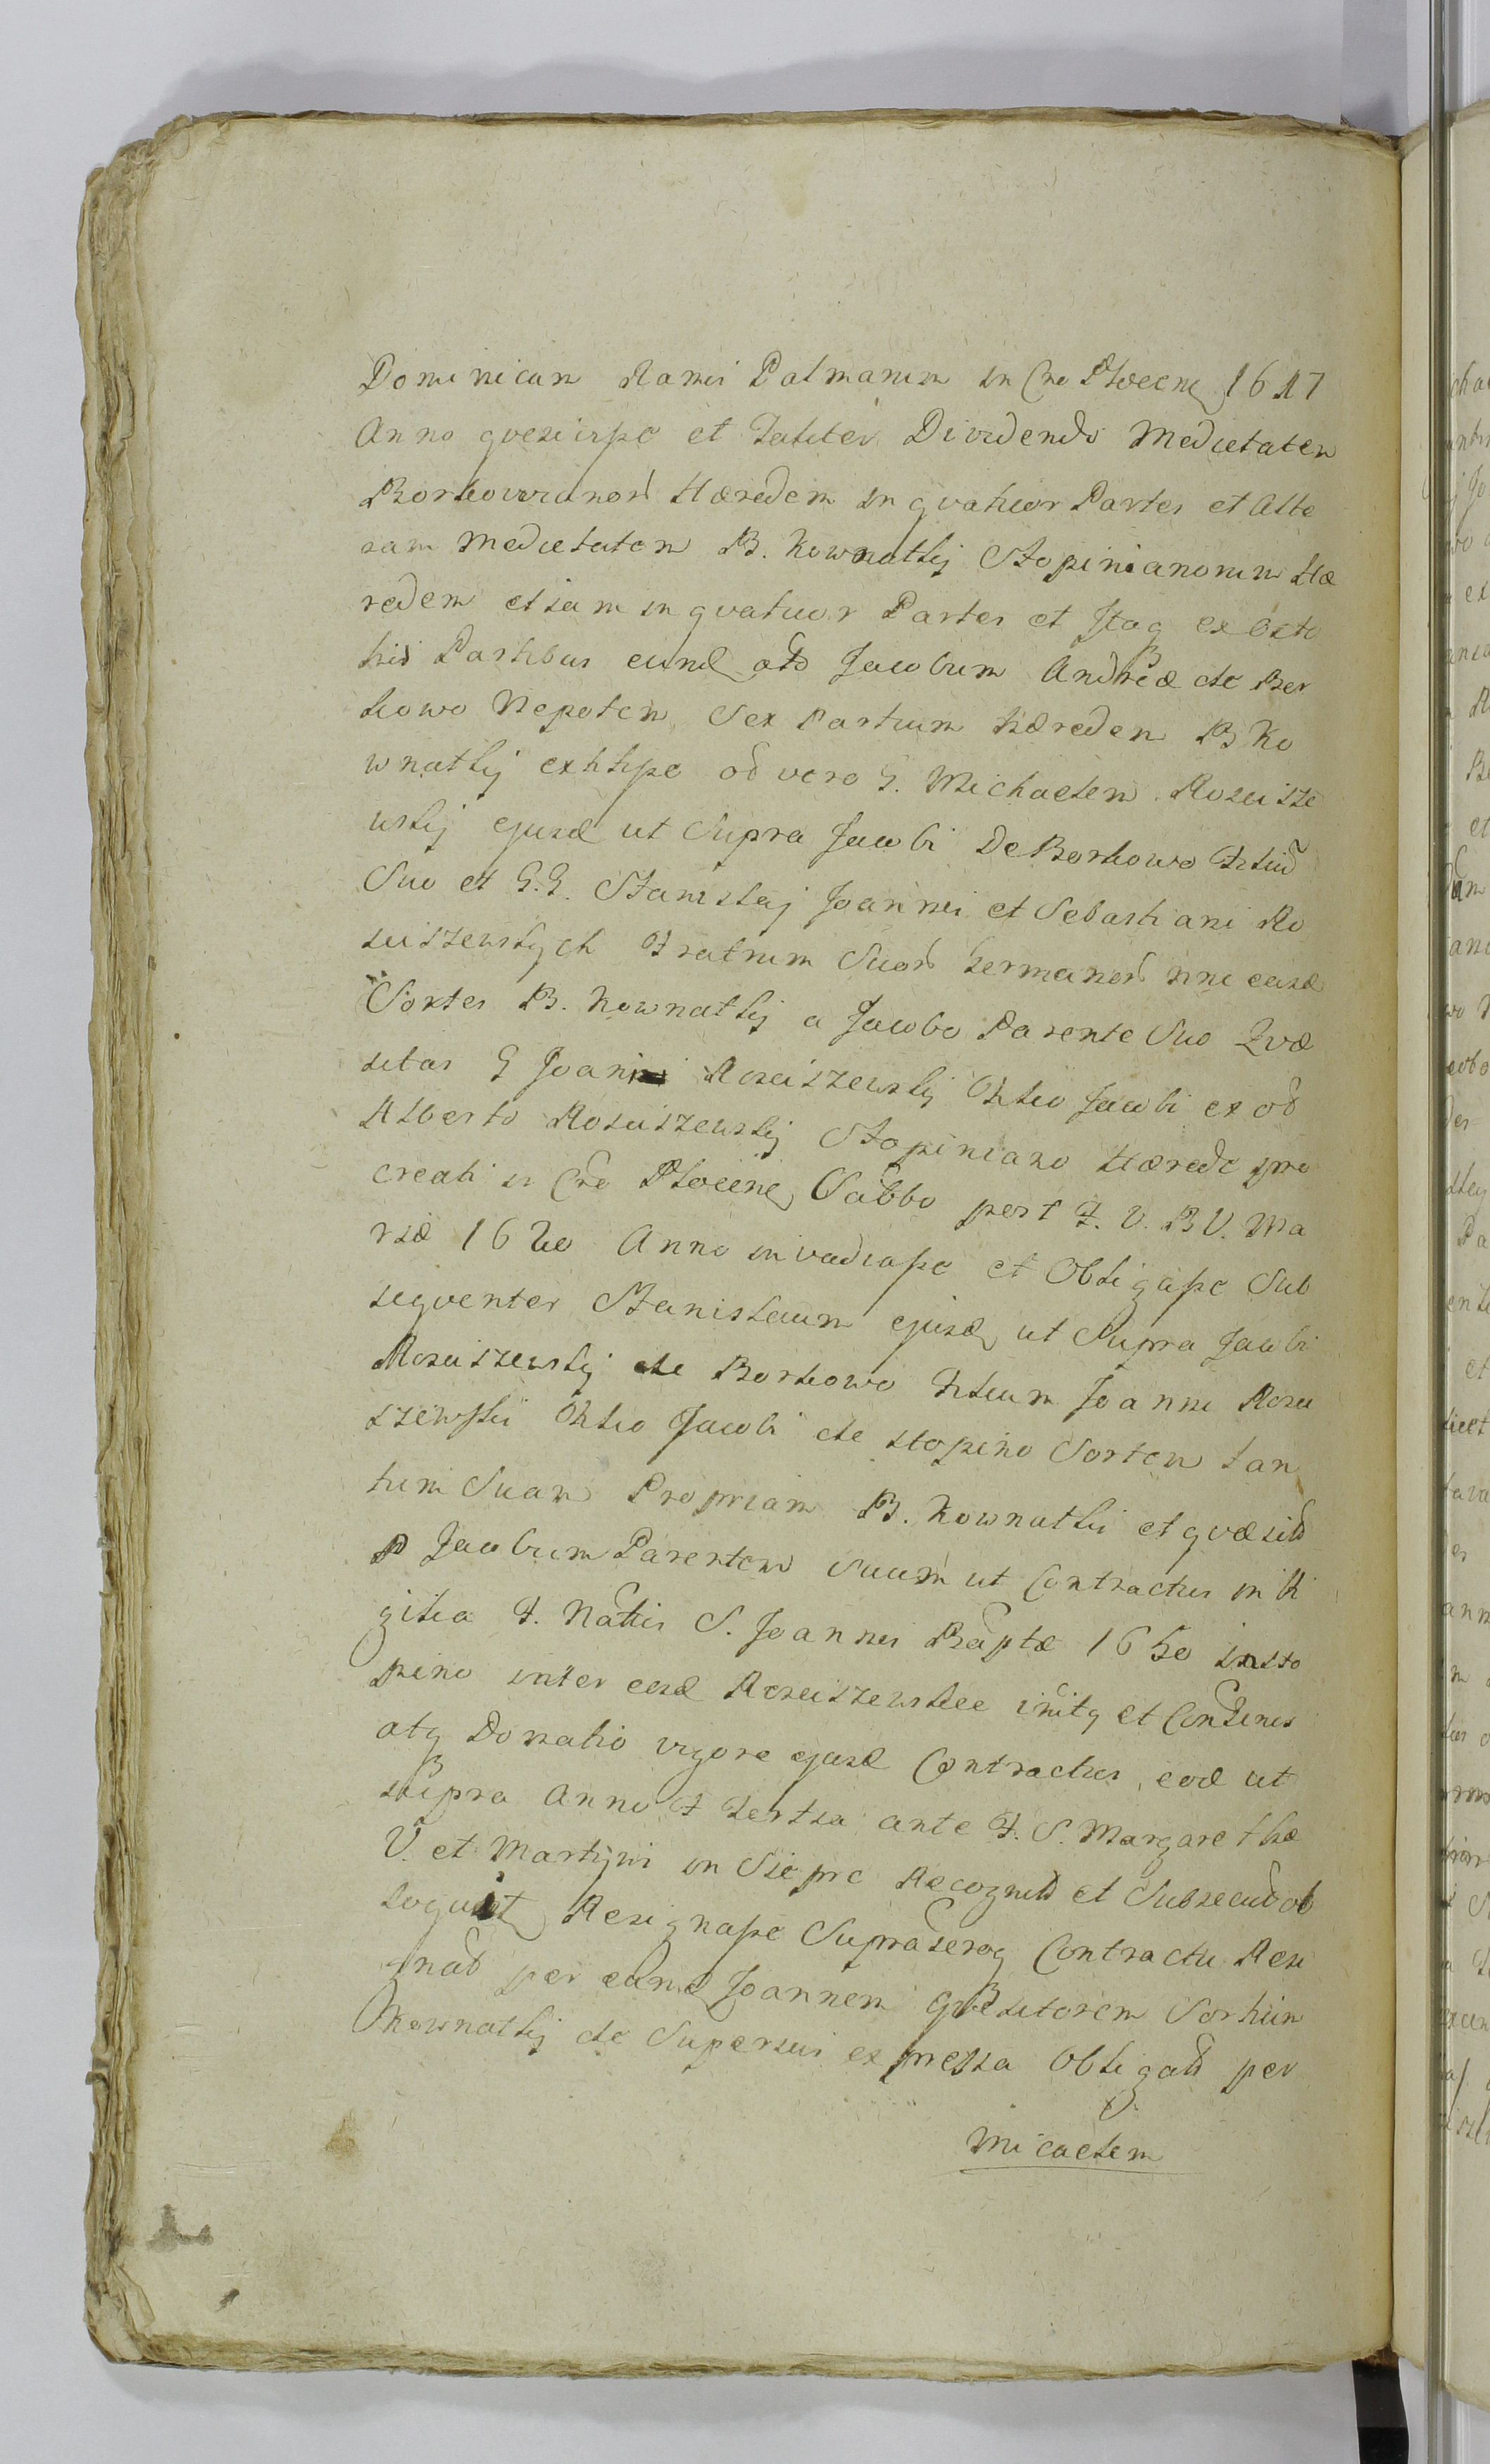 Dominicam Ramis Palmarum in Cro Plocen 1617
Anno qvesivisse et Taliter Dividendo Medietatem
Borkowianor Hæredem in qvatuor Partes et Alte
ram Medietatem B. Kownatkij Stopinianorum Hæ
redem etiam in qvatuor Partes et Itaq ex Octo
his Partibus eund Jacobum Andreæ de Bor
kowo Nepotem Sex Partium Hæredem B Ko
wnatkij extitisse vero G. Michaelem Roscisze
wskij ejusd ut Supra Jacobi De Borkowo Filiu
Suo et G.G. Stanislaj Joannis et Sebastiani Ro
sciszewskych Fratrum Suor Germanor nne easd
Sortes B. Kownatkij a Jacobo Parente Suo Qvæ
sitas G Joanni Rosciszewskij Filio Jacobi ex
Alberto Rosciszewskij Stopiniano Hærede pro
creati in Cro Plocen Sabbo post F. V. B V. Ma
riæ 1620 Anno invadiasse et Obligasse Sub
seqventer Stanislaum ejusd ut Supra Jacobi
Rosciszewskij de Borkowo Filium Joanni Rosci
szewskii Filio Jacobi de Stopino Sortem tan
tum Suam Propriam B. Kownatkii et qvæsit
p Jacobum Parentem Suum ut Contractus in Vi
gilia F. Nattis S. Joannis Baptæ 1650 in Sto
pino inter eosd Rosciszewskie init et Contines
atq Donatio vigore ejusd Contractus eod ut
supra Anno F Tertia ante F. S. Margarethæ
V. et Martyris in Sieprc Recognit et Subsecut ob
loquit Resignasse Supra Contractu Resi
gnat per eund Joannem Qvæsitorem Sortium
Kownatkij de Superius expressa Obligat per
G.
Micaelem